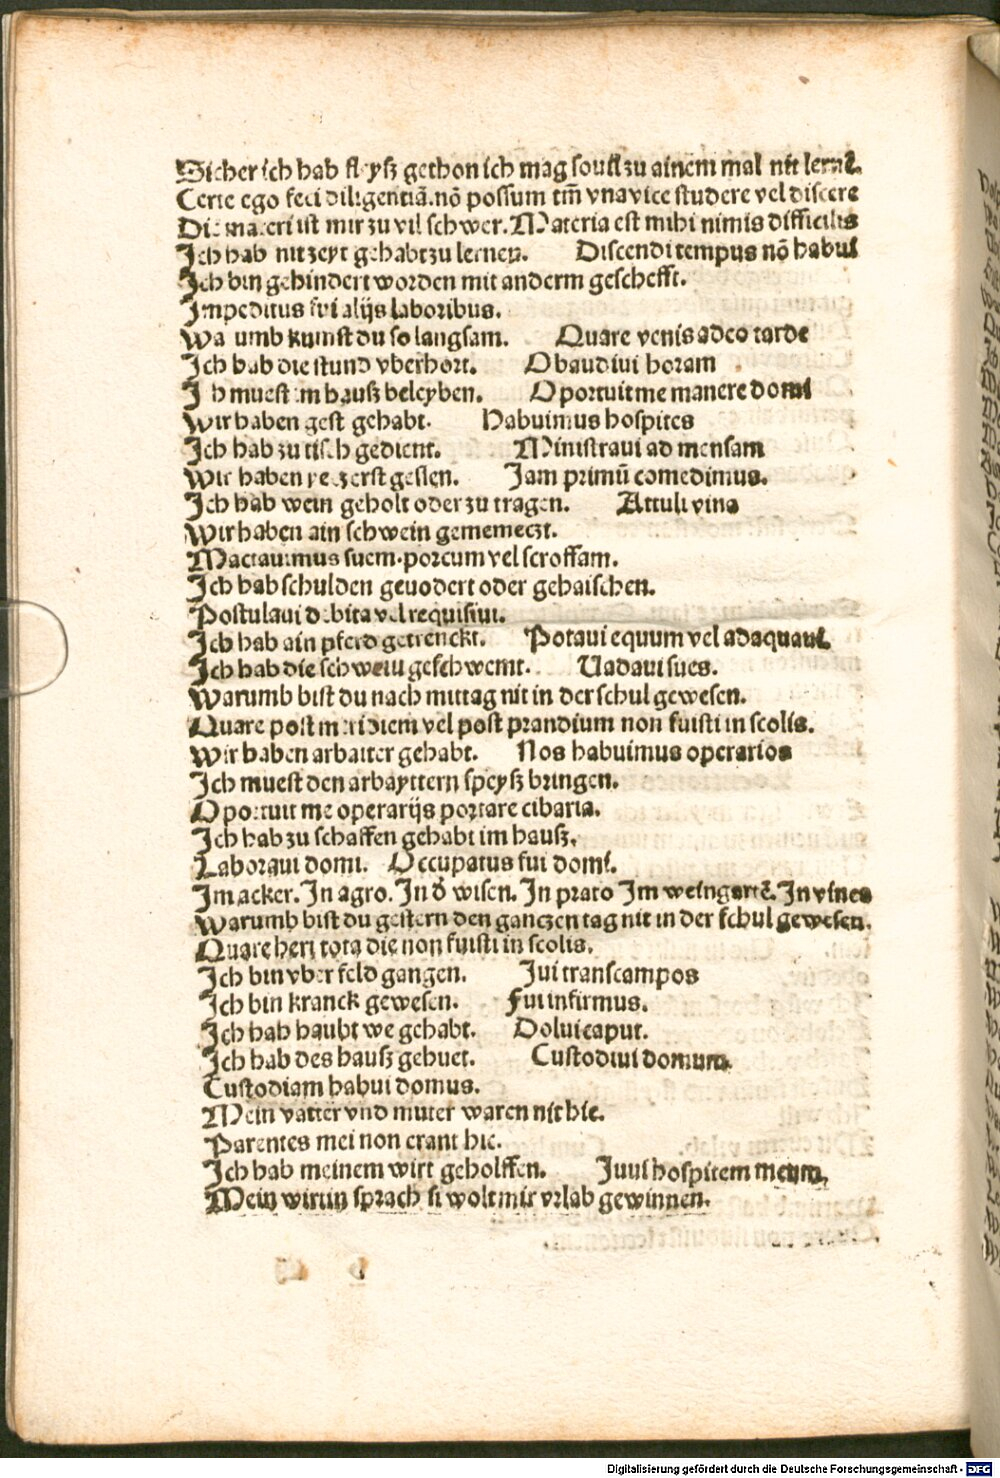 Sicher ich hab fleyß gethon ich mag souil zu ainem mal nit lernē.
Certe ego feci diligentiā. nō possum tm̄ vna vice studere vel discere
Die materi ist mir zu vil schwer. Materia est mihi nimis difficilis
Ich hab nit zeyt gehabt zu lernen. Discendi tempus nō habui
Ich bin gehindert worden mit anderm geschefft.
Impeditus fui alijs laboribus.
Warumb kumst du so langsam. Quare venis adeo tarde
Ich hab die stund vberhort. Obaudiui horam
Ich muest im hauß beleyben. Oportuit me manere domi
Wir haben gest gehabt. Habuimus hospites
Ich hab zu tisch gedient. Ministraui ad mensam
Wir haben yetzerst gessen. Jam primū comedimus.
Ich hab wein geholt oder zu tragen. Attuli vina
Wir haben ain schwein gememeczt.
Mactauimus suem. porcum vel scroffam.
Ich hab schulden geuodert oder gehaischen.
Postulaui debita vel requisiui.
Ich hab ain pferd getrenckt. Potaui equum vel adaquaui.
Ich hab die schwein geschwemt. Uadaui sues.
Warumb bist du nach mittag nit in der schul gewesen.
Quare post meridiem vel post prandium non fuisti in scolis.
Wir haben arbaiter gehabt. Nos habuimus operarios
Ich muest den arbayttern speyß bringen.
Oportuit me operarijs portare cibaria.
Ich hab zu schaffen gehabt im hauß.
Laboraui domi. Occupatus fui domi.
Im acker. In agro. In d' wisen. In prato Im weingartē. In vinea
Warumb bist du gestern den ganczen tag nit in der schul gewesen.
Quare heri tota die non fuisti in scolis.
Ich bin vber feld gangen. Iui trans campos
Ich bin kranck gewesen. Fui infirmus.
Ich hab haubt we gehabt. Dolui caput.
Ich hab des hauß gehuet. Custodiui domum.
Custodiam habui domus.
Mein vatter vnd muter waren nit hie.
Parentes mei non erant hic.
Ich hab meinem wirt geholffen. Juui hospitem meum.
Mein wirtin sprach si wolt mir vrlab gewinnen.
Digitalisierung gefördert durch die Deutsche Forschungsgemeinschaft - DFG